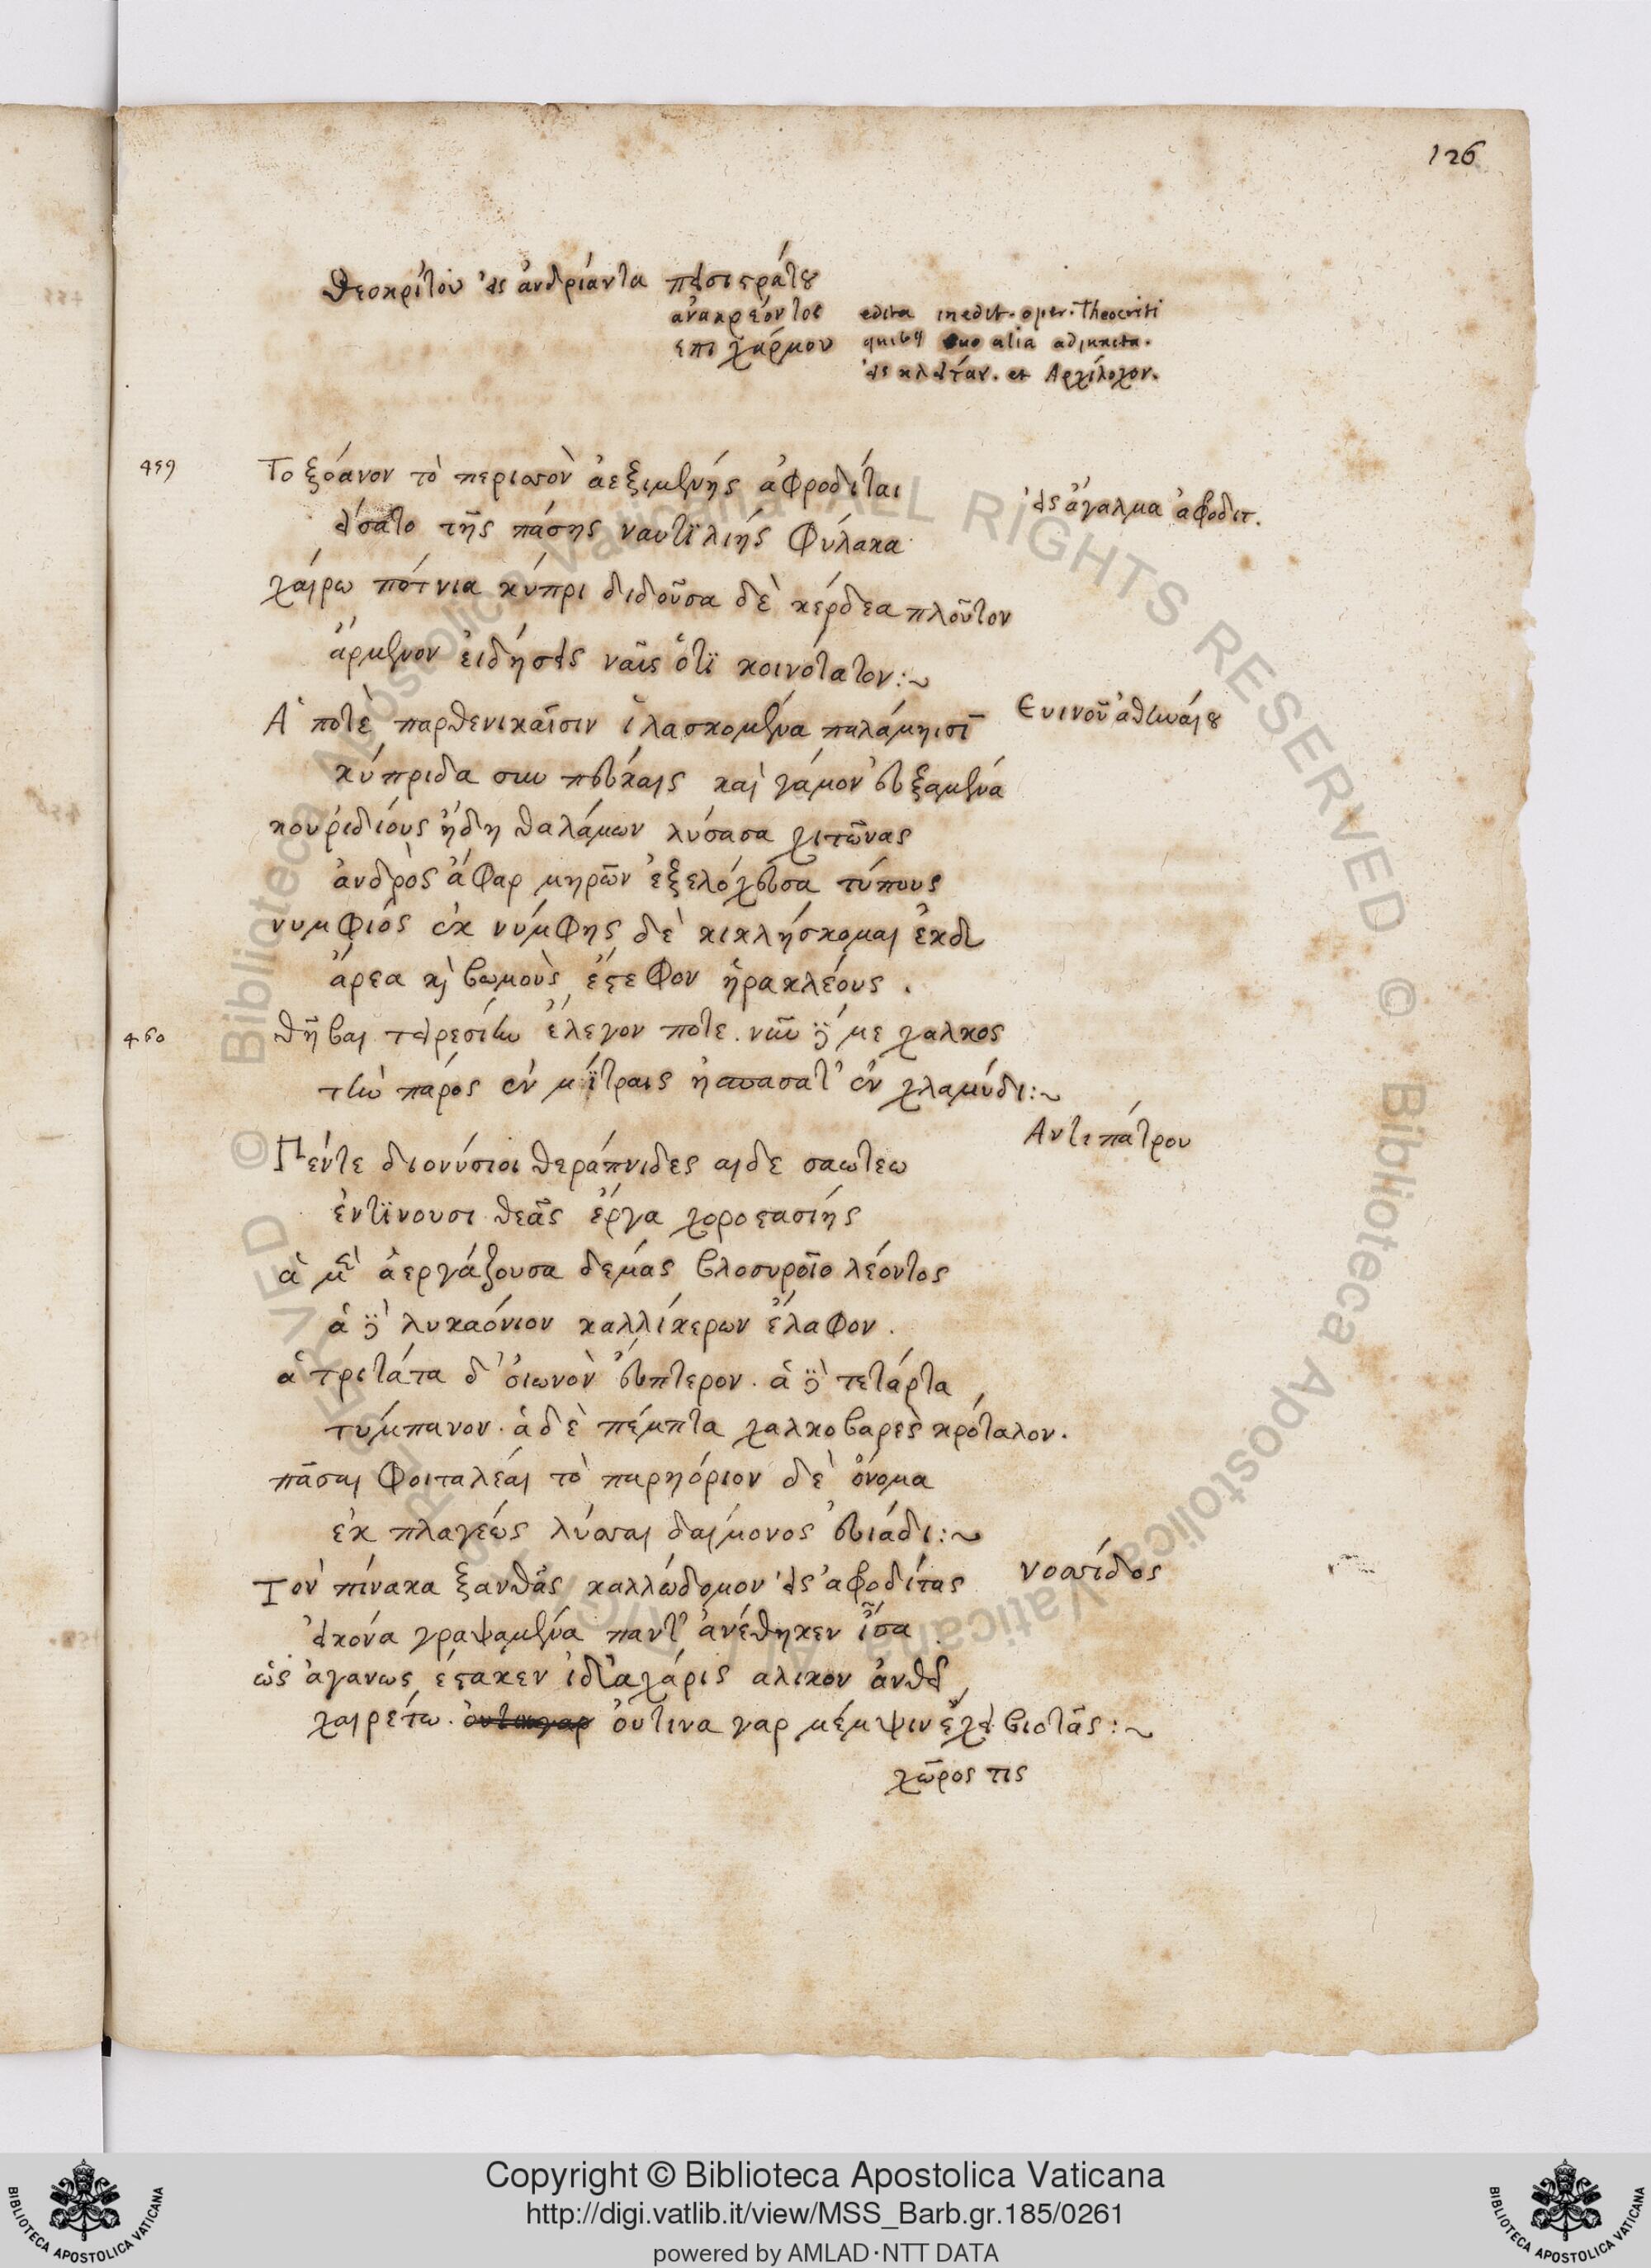 126
Θεοκρίτου εἰς ἀνδριάντα πεισιστράτου
ἀνακρέοντος edita inedit. oper. Theocriti
ἐπιχάρμου quibus duo alia adjuncta.
εἰς κλείταν. et Ἀρχίλοχον.
459 Το ξόανον τὸ περισσὸν ἀεξιμένης ἀφροδίται
εἵσατο τῆς πάσης ναυτϊλίης φύλακα
εἰς ἄγαλμα ἀφροδιτ.
χαίρω πότνια κύπρι διδοῦσα δὲ κέρδεα πλοῦτον
ἄρμενον εἰδήσεις ναῖς ὅτϊ κοινότατον:~
Ευινοῦ ἀθηναίου
Ἁ ποτὲ παρθενικαῖσιν ἱλασκομένα παλάμηισϊ
κύπριδα σὺν πεύκαις καὶ γάμον εὐξαμένα
κουριδίους ἤδη θαλάμων λύσασα χιτῶνας
ἀνδρὸς ἄφαρ μηρῶν ἐξελόχευσα τύπους
νυμφιός ἐκ νύμφης δὲ κικλήσκομαι ἐκ δὲ
ἄρεα καὶ βωμοὺς ἔστεφον ἡρακλέους .
460 θῆβαι τειρεσίην ἔλεγον ποτε. νῦν δέ με χαλκος
τὴν πάρος ἐν μίτραις ἠσπασατ' ἐν χλαμύδι:~
Αντιπάτρου
Πέντε διονύσιοι θεράπνιδες αιδε σαωτεω
ἐντϊνουσι θεᾶς ἔργα χοροστασίης
ἁ μὲν ἀεργάζουσα δεμάς βλοσυροῖο λέοντος
ἁ δὲ λυκαόνιον καλλίκερων ἔλαφον .
ἁ τριτάτα δ' ὀιωνὸν εὔπτερον . ἁ δὲ τετάρτα
τύμπανον . ἁ δὲ πέμπτα χαλκοβαρὲς κρόταλον .
πᾶσαι φοιταλέαι τὸ παρηόριον δὲ ὄνομα
ἐκ πλαγέως λύσσαι δαίμονος εὐιάδι:~
Τον πίνακα ξανθᾶς καλλώδομον εἰς ἀφροδίτας
νοσσίδος
εἰκόνα γραψαμένα παντ' ἀνέθηκεν ἶσα .
ὡς ἀγανως ἕστακεν ἰδ' ἁ χάρις αλικον ἀνθεῖ
χαιρέτω . οὐτιναγαρ οὔτινα γαρ μέμψιν ἔχει βιοτᾶς:~
χῶρος τις
Copyright © Biblioteca Apostolica Vaticana
http://digi.vatlib.it/view/MSS_Barb.gr.185/0261
powered by AMLAD·NTT DATA
BIBLIOTECA APOSTOLICA VATICANA
BIBLIOTECA APOSTOLICA VATICANA
© Biblioteca Apostolica Vaticana ALL RIGHTS RESERVED © Biblioteca Apostolica Vaticana ALL RIGHTS RESERVED